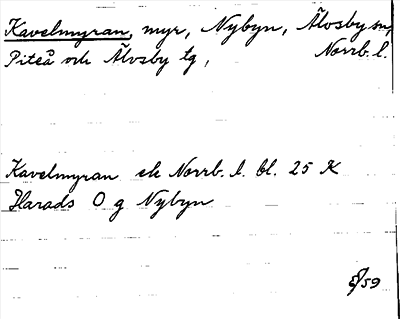 Kavelmyran, myr, Nybyn, Älvsby sn,
Piteå och Älvsby tg, Norrb. l.
Kavelmyran ek Norrb. l. bl. 25 K
Harads O g Nybyn
5/59